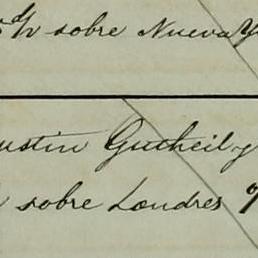 sobre Nueva Y
ustin Gutheil y
sobre Londres